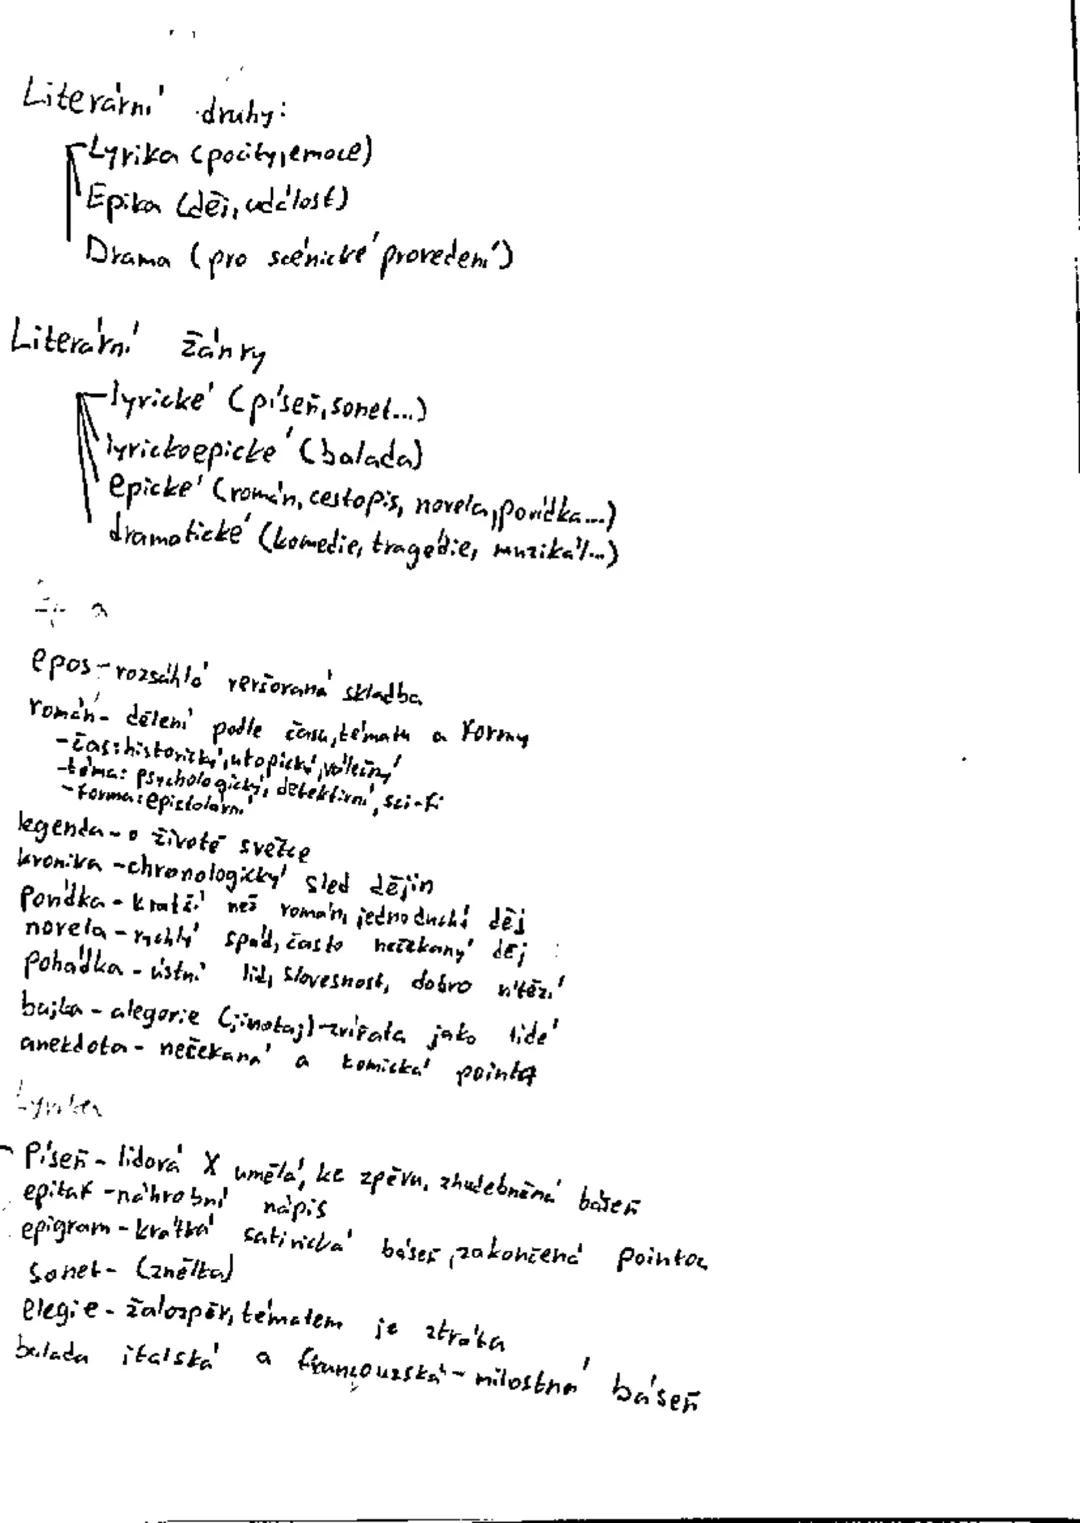 Literární druhy:
Lyrika (pocity, emoce)
Epika (děj, událost)
Drama (pro scénické provedení)
Literární žánry
lyrické (píseň, sonet...)
lyrickoepické (balada)
epické (román, cestopis, novela, povídka...)
dramatické (komedie, tragédie, muzikál...)
epos - rozsáhlá veršovaná skladba
román - dělení podle času, tématu a formy
- čas: historický, utopický, válečný
- téma: psychologický, detektivní, sci-fi
- forma: epistolární
legenda - o životě světce
kronika - chronologický sled dějin
povídka - kratší než román, jednoduchý děj
novela - rychlý spád, často nečekaný děj
pohádka - ústní lid, slovesnost, dobro vítězí
bajka - alegorie (jinotaj) - zvířata jako lidé
anekdota - nečekaná a komická pointa
Lyrika
Píseň - lidová X umělá, ke zpěvu, zhudebněná báseň
epitaf - náhrobní nápis
epigram - krátká satirická báseň, zakončená pointou
sonet - (znělka)
elegie - žalozpěv, tématem je ztráta
balada italská a francouzská - milostná báseň